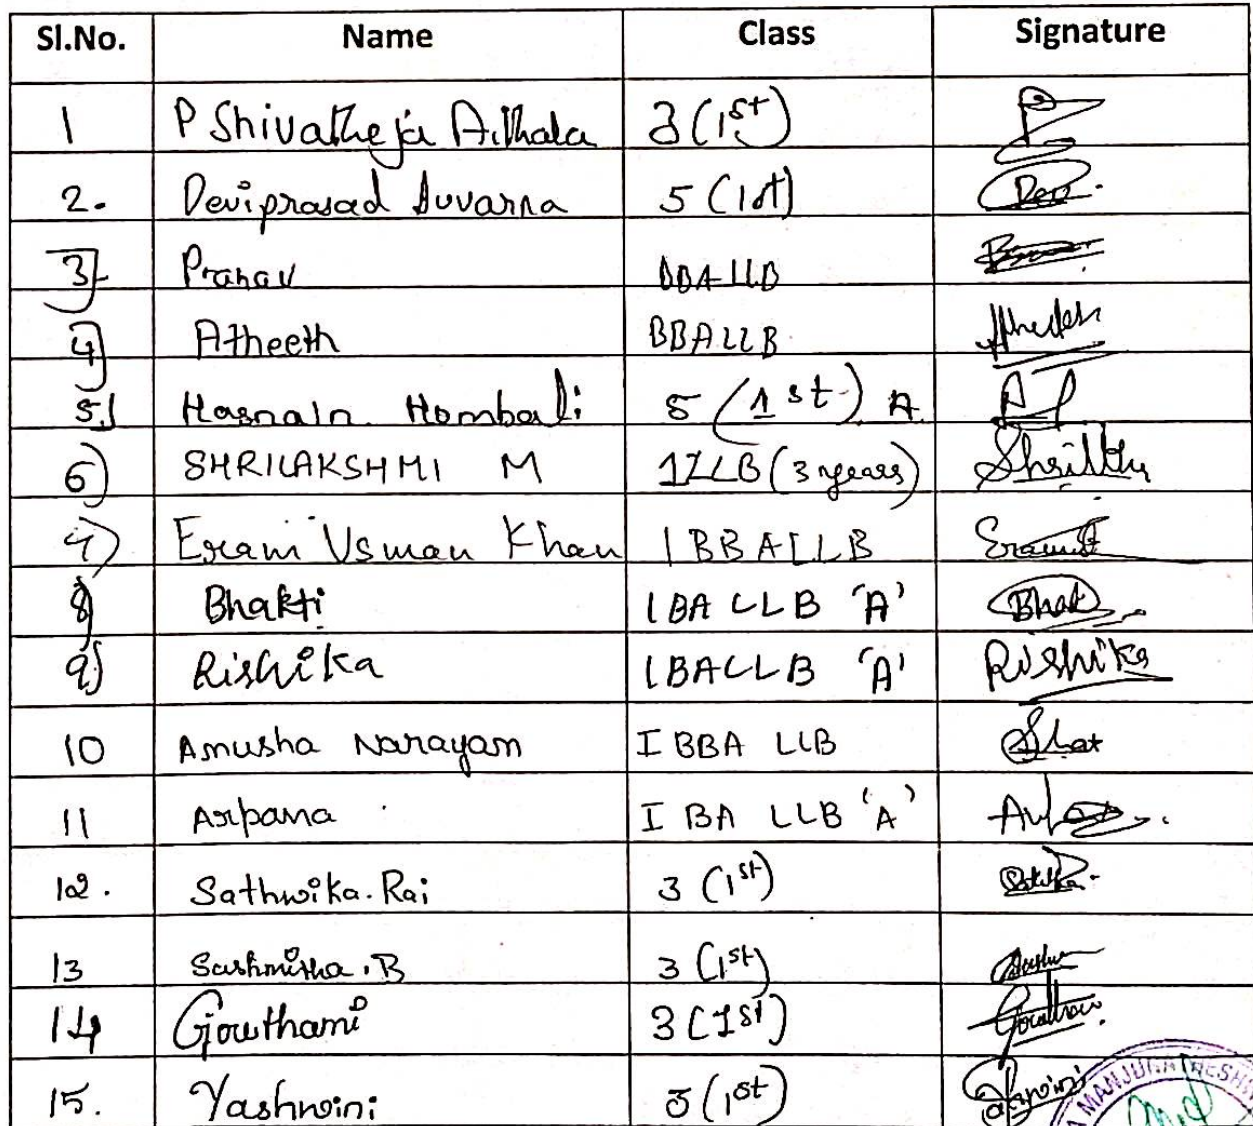 Sl.No. Name Class Signature
1 P Shivatheja Aithala 3 (1st)
2. Deviprasad Suvarna 5 (1st)
3) Pranav BBALLB
4) Atheeth BBALLB
5) Hasnain Hombali 5 (1st) A
6) SHRILAKSHMI M 1LLB (3 years)
7) Eram Usman Khan I BBALLB
8) Bhakti I BA LLB 'A' Bhak
9) Rishika I BALLB 'A' Rishika
10 Anusha Narayan I BBA LLB
11 Arpana I BA LLB 'A'
12. Sathwika.Rai 3 (1st)
13 Sushmitha.B 3 (1st)
14 Gowthami 3 (1st)
15. Yashwini 5 (1st)
MANJUNATHESHW